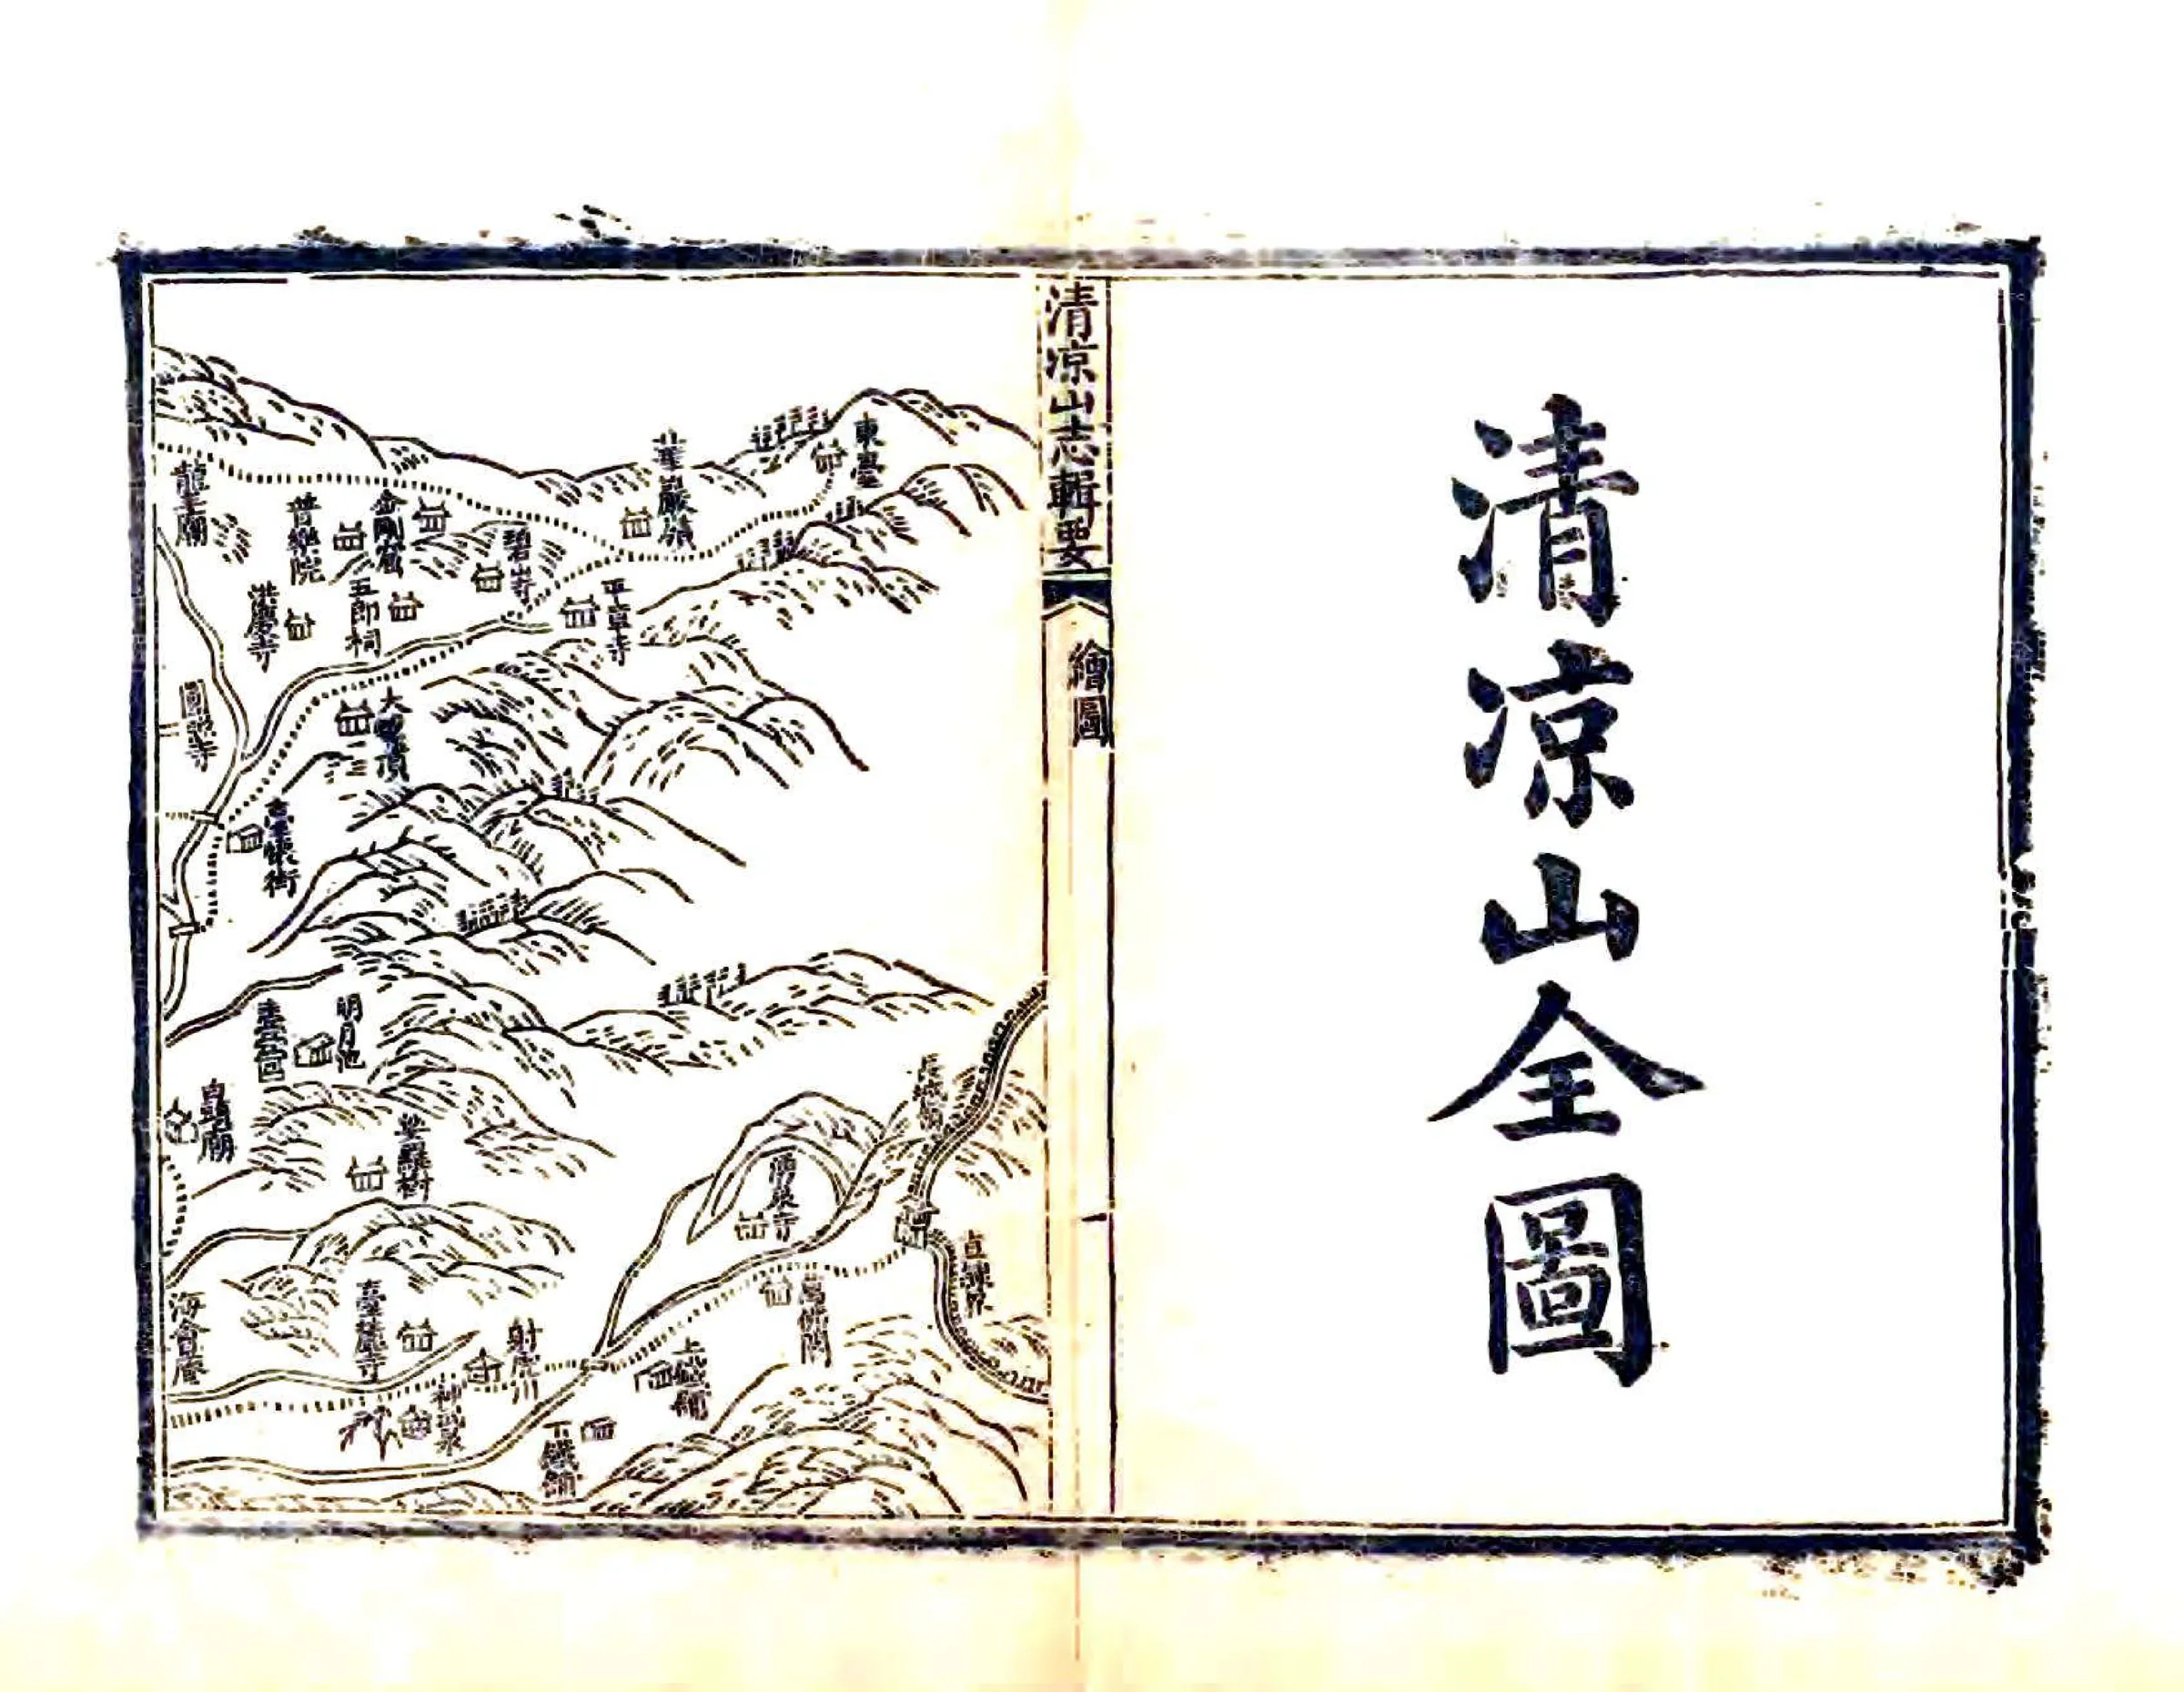 清凉山全圖
清凉山志輯要
繪圖
東臺
華嚴嶺
平章寺
碧山寺
金剛窟
五郎祠
普樂院
洪慶寺
龍王廟
圓照寺
大螺頂
臺懷街
明月池
白頭廟
娑羅樹
長城嶺
湧泉寺
直隸界
萬佛閣
上鐵舖
下鐵舖
射虎川
神武泉
臺麓寺
海會庵